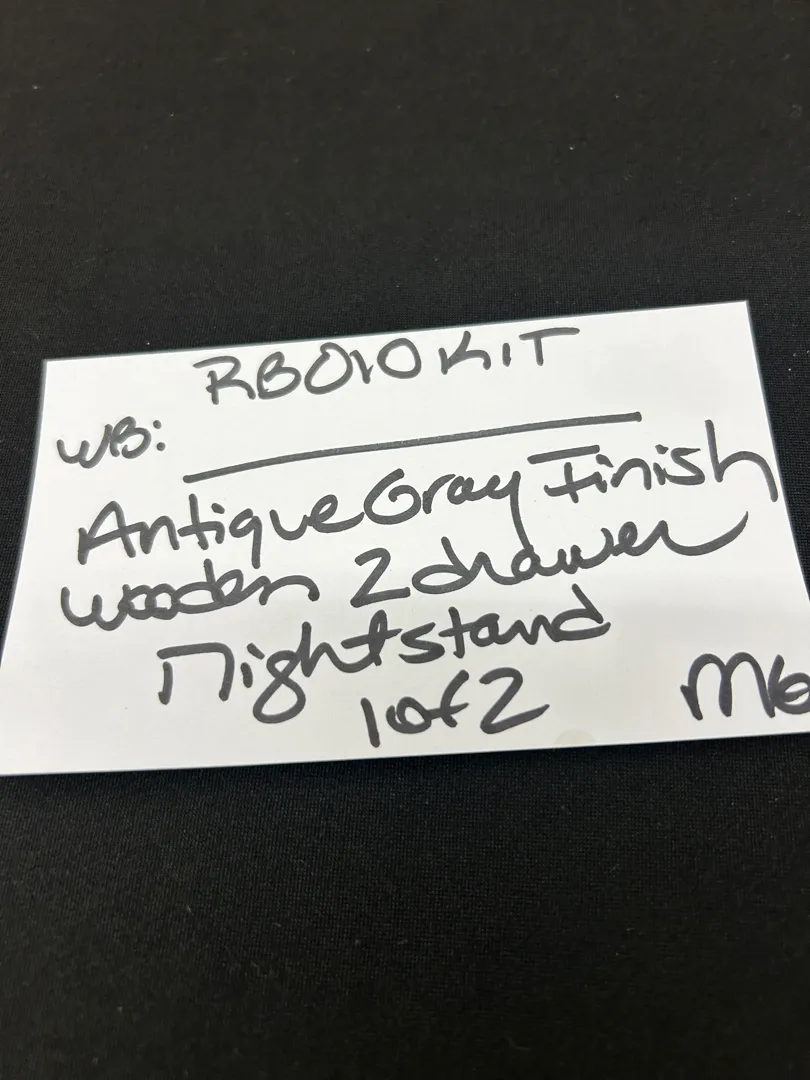 RB010 KIT
WB:
Antique Gray Finish
wooden 2 drawer
Nightstand
1 of 2